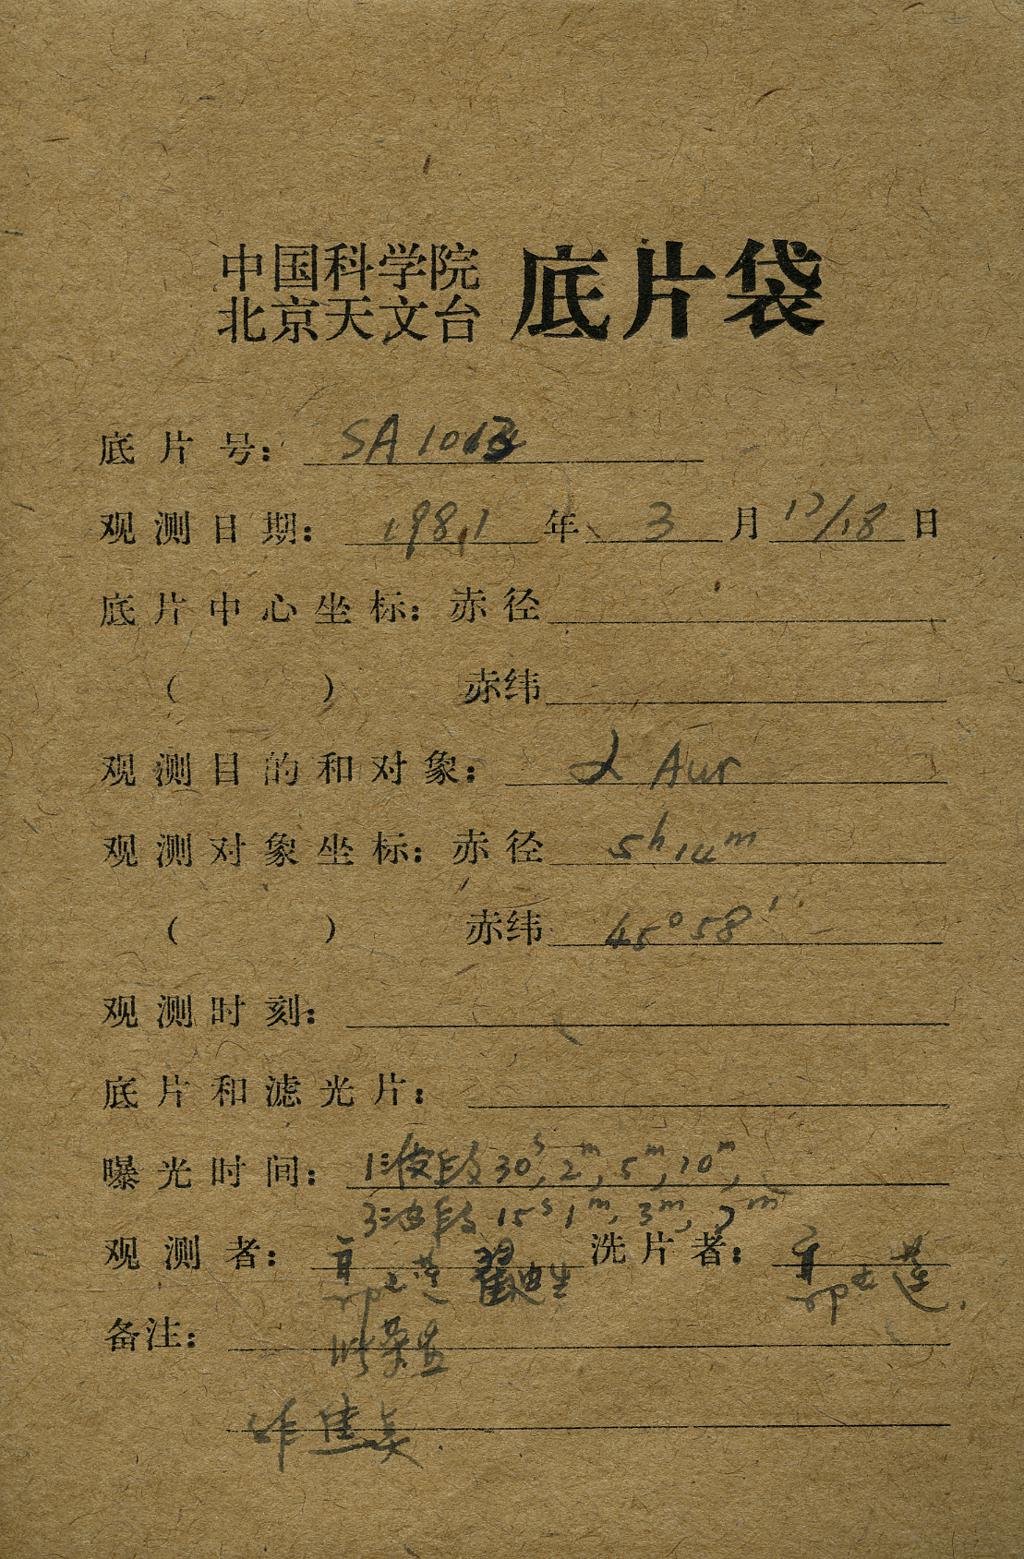 中国科学院
北京天文台 底片袋
底片号: SA101
观测日期: 1981年 3月 17/18日
底片中心坐标: 赤径
( ) 赤纬
观测目的和对象: α Aur
观测对象坐标: 赤径 5h14m
( ) 赤纬 45°58'
观测时刻:
底片和滤光片:
曝光时间: 1波段 30s, 2m, 5m, 10m,
3波段 15s 1m, 3m, 7m
观测者: 郭 莲 翟迪生 洗片者: 郭 莲.
备注: